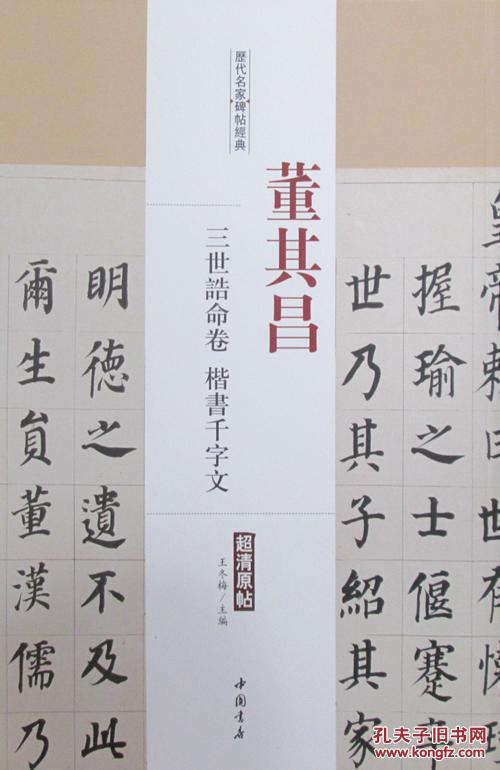 歷代名家碑帖經典
董其昌
三世誥命卷 楷書千字文
超清原帖
王冬梅/主編
中国书店
皇帝敕曰世有懷
握瑜之士偃蹇卒
世乃其子紹其家
明德之遺不及此
爾生員董漢儒乃
孔夫子旧书网
www.kongfz.com